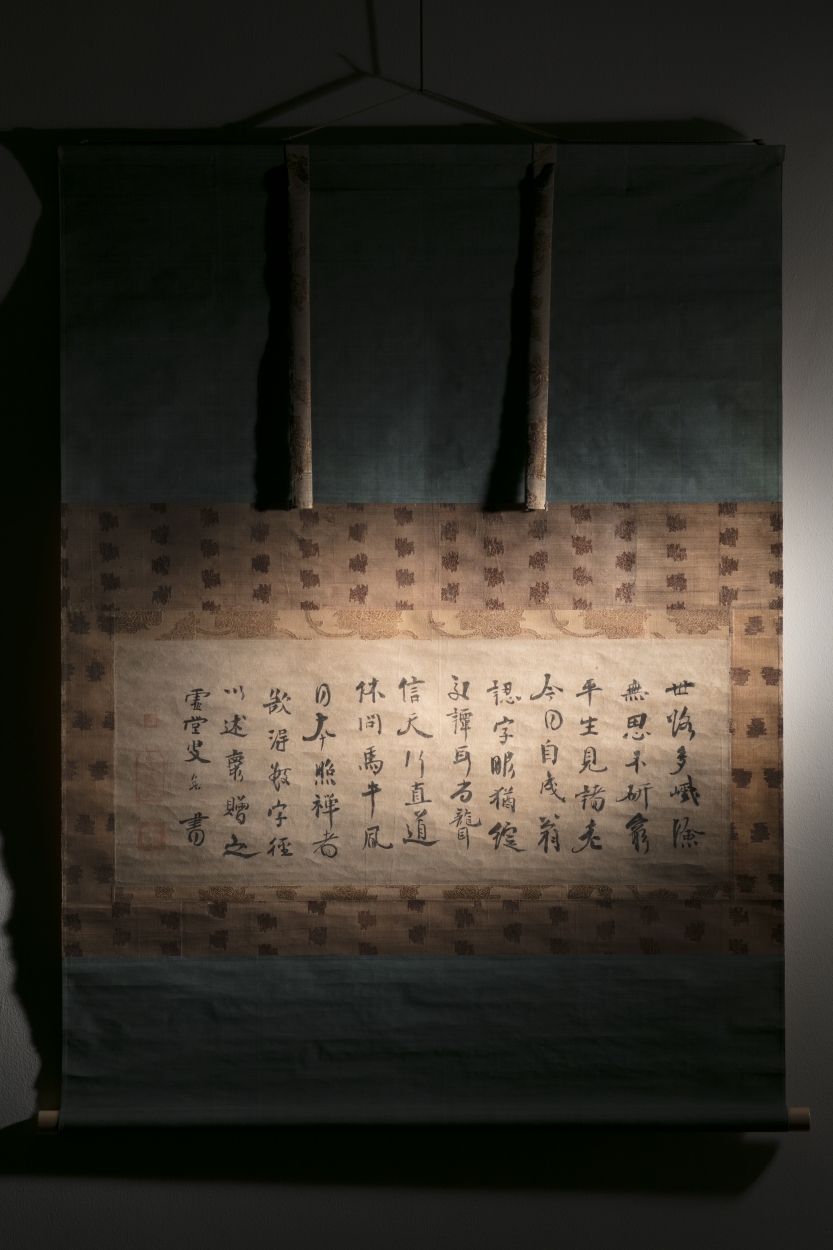 世路多巇嶮
無思不研窮
平生見諸老
今日自成翁
認字眼猶綻
譚耳尚聾
信天行直道
休問馬牛風
日本照禅者
欲得數字徑
以述懷贈之
虛堂叟 書